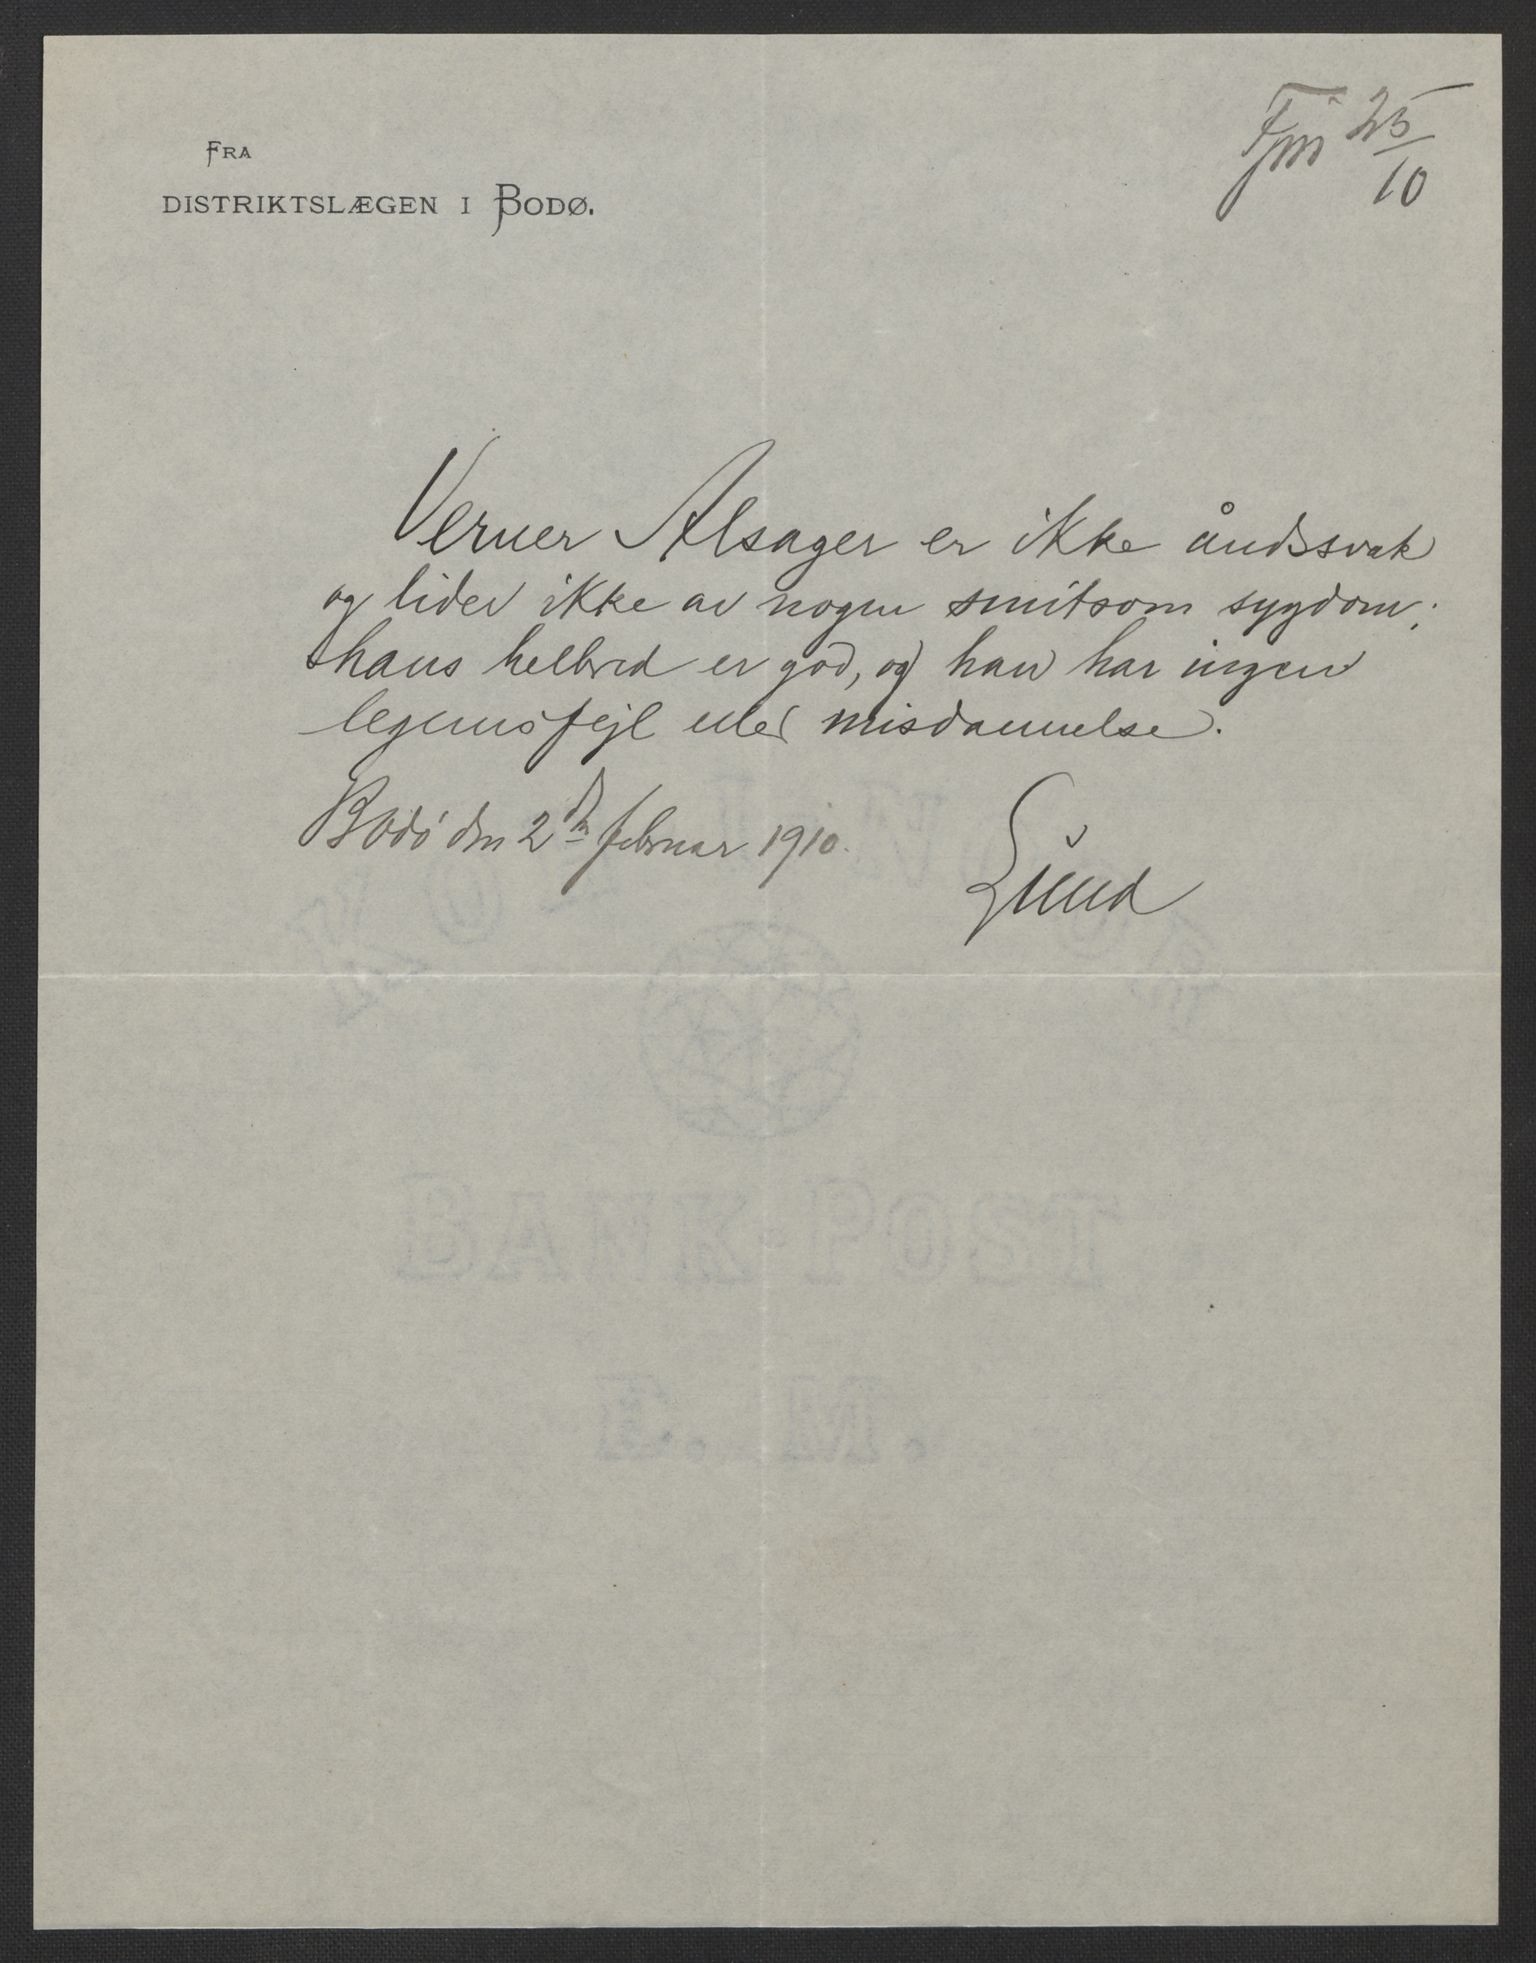 FRA
DISTRIKTSLÆGEN I BODØ.
25
10
Verner Alsager er ikke åndssvak
og lider ikke av nogen smitsom sygdom;
hans helbred er god, og han har ingen
legemsfejl eller misdannelse.
Bodø den 2den februar 1910.
Lund
BANK-POST